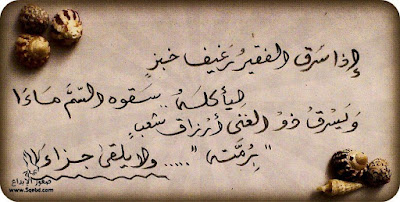 إذا سَرق الفقيرُ رَغيف خبزٍ
ليأكلهُ .. سَقوه السّمّ ماءَا
وَيَسْرقُ ذو الغنى أرْزاق شعبٍ
"بِرُمَّته" ..... ولا يلقى جزاءَا
صقور الإبداع
www.5or6d.com